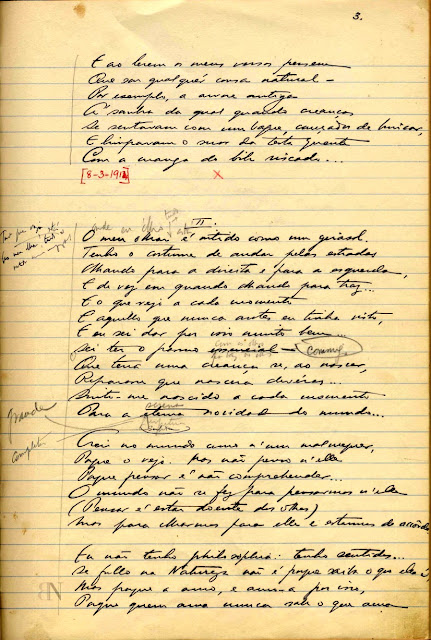 3.
E ao lerem os meus versos pensem
Que sou qualquer cousa natural —
Por exemplo, a arvore antiga
Á sombra da qual quando creanças
Se sentavam com um baque, cançados de brincar,
E limpavam o suor da testa quente
Com a manga do bibe riscado...
[8-3-1914] X
II.
O meu olhar é nitido como um girasol.
Tenho o costume de andar pelas estradas
Olhando para a direita e para a esquerda,
E de vez em quando olhando para traz...
E o que vejo a cada momento
É aquillo que nunca antes eu tinha visto,
E eu sei dar por isso muito bem...
Sei ter o pasmo essencial commigo
Que teria uma creança se, ao nascer,
Reparasse que nascera devéras...
Sinto-me nascido a cada momento
Para a eterna novidade do mundo...
completa
Creio no mundo como n'um malmequer,
Porque o vejo. Mas não penso n'elle
Porque pensar é não comprehender...
O mundo não se fez para pensarmos n'elle
(Pensar é estar doente dos olhos)
Mas para olharmos para elle e estarmos de accôrdo.
Eu não tenho philosophia: tenho sentidos...
Se fallo na Natureza não é porque saiba o que ella é,
Mas porque a amo, e amo-a por isso,
Porque quem ama nunca sabe o que ama